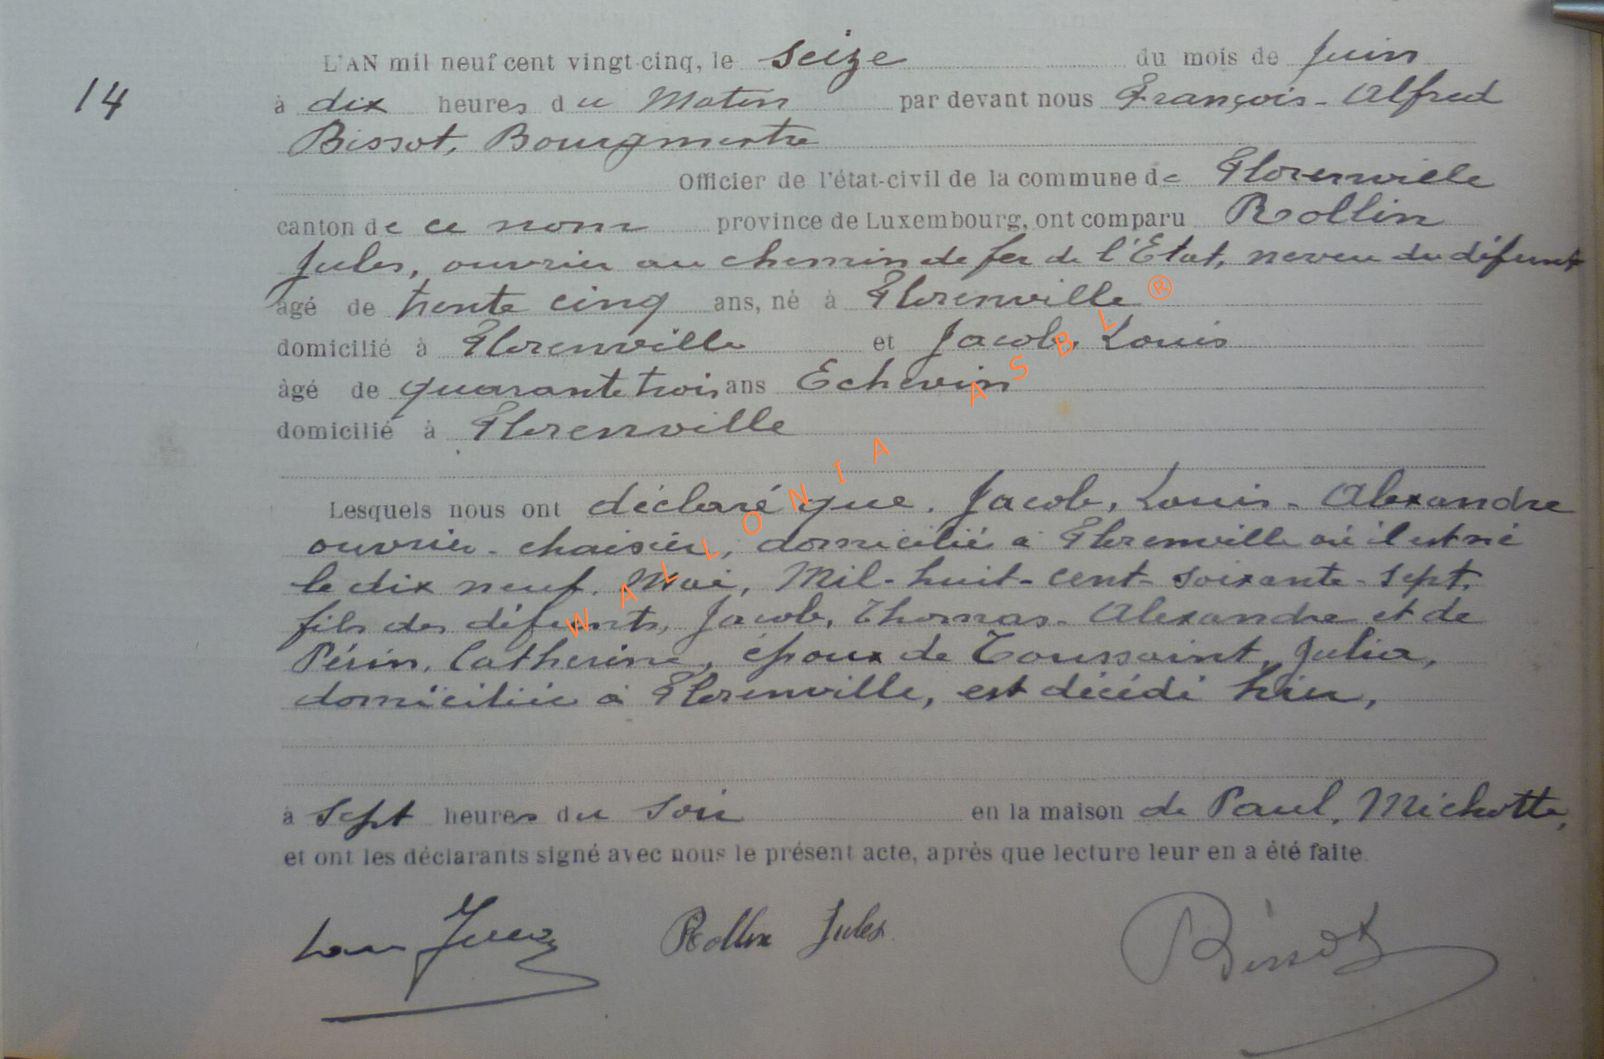 L'AN mil neuf cent vingt-cinq, le seize du mois de Juin
14
à dix heures du Matin par devant nous François-Alfred
Bissot, Bourgmestre
Officier de l'état-civil de la commune de Florenville
canton de ce nom province de Luxembourg, ont comparu Rollin
Jules, ouvrier au chemin de fer de l'Etat, neveu du défunt
âgé de trente cinq ans, né à Florenville
domicilié à Florenville et Jacob, Louis
âgé de quarante trois ans Echevin
domicilié à Florenville
Lesquels nous ont déclaré que, Jacob, Louis-Alexandre
ouvrier-chaisier, domicilié à Florenville où il est né
le dix neuf Mai, Mil-huit-cent-soixante-sept,
fils des défunts, Jacob, Thomas-Alexandre et de
Périn, Catherine, époux de Toussaint, Julia,
domiciliée à Florenville, est décédé hier,
à sept heures du soir en la maison de Paul, Michotte,
et ont les déclarants signé avec nous le présent acte, après que lecture leur en a été faite.
Rollin Jules Bissot
WALLONIA ASBL ®